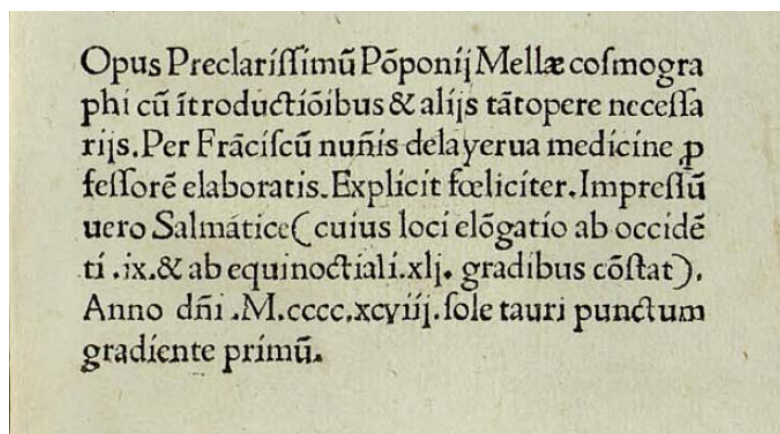 Opus Preclariſſimū Pōponij Mellæ coſmogra
phi cū ītroductiōibus & alijs tātopere neceſſa
rijs. Per Frāciſcū nuñis delayerua medicine ꝓ
feſſorē elaboratis. Explicit fœliciter. Impreſſū
uero Salmātice ( cuius loci elōgatio ab occidē
ti .ix. & ab equinoctiali .xlj. gradibus cōſtat ).
Anno dñi .M.cccc.xcviij. ſole tauri punctum
gradiente primū.